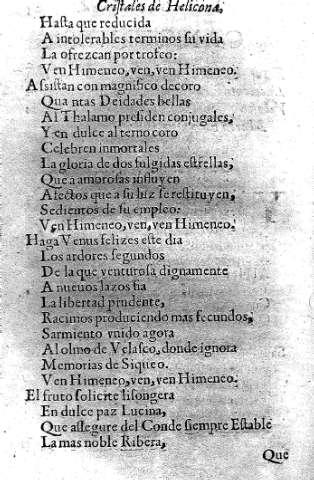 Cristales de Helicona.
Hasta que reducida
A intolerables terminos su vida
La ofrezcan por trofeo:
Ven Himeneo, ven, ven Himeneo.
Assistan con magnifico decoro
Quantas Deidades bellas
Al Thalamo presiden conjugales,
Y en dulce alterno coro
Celebren inmortales
La gloria de dos fulgidas estrellas,
Que a amorosas influyen
Afectos que a su luz se restituyen,
Sedientos de su empleo:
Ven Himeneo, ven, ven Himeneo.
Haga Venus felizes este dia
Los ardores segundos
De la que venturosa dignamente
A nuevos lazos fia
La libertad prudente,
Racimos produciendo mas fecundos,
Sarmiento vnido agora
Al olmo de Velasco, donde ignora
Memorias de Siqueo.
Ven Himeneo, ven, ven Himeneo.
El fruto solicite lisongera
En dulce paz Lucina,
Que assegure del Conde siempre Estable
La mas noble Ribera,
Que